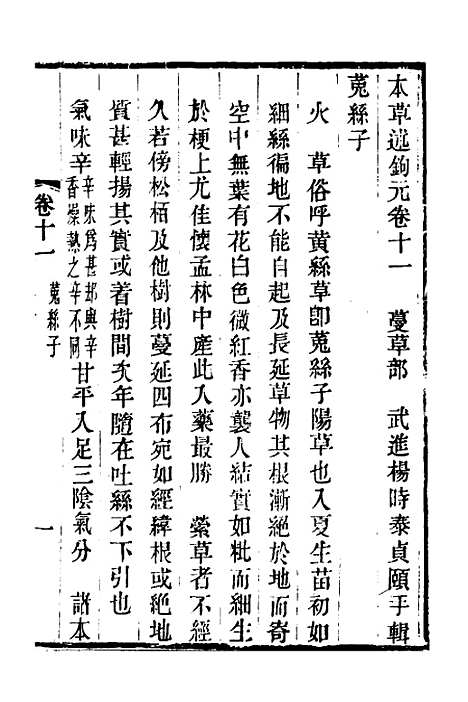 本草述鉤元卷十一　蔓草部　武進楊時泰貞頤手輯
菟絲子
火　草俗呼黄絲草卽菟絲子陽草也入夏生苗初如
細絲徧地不能自起及長延草物其根漸絕於地而寄
空中無葉有花白色微紅香亦襲人結實如秕而細生
於梗上尤佳懷孟林中產此入藥最勝　縈草者不經
久若傍松栢及他樹則蔓延四布宛如經緯根或絕地
質甚輕揚其實或着樹間次年隨在吐絲不下引也
氣味辛辛味爲甚却與辛香燥熱之辛不同甘平入足三陰氣分　諸本
卷十一　菟絲子　一